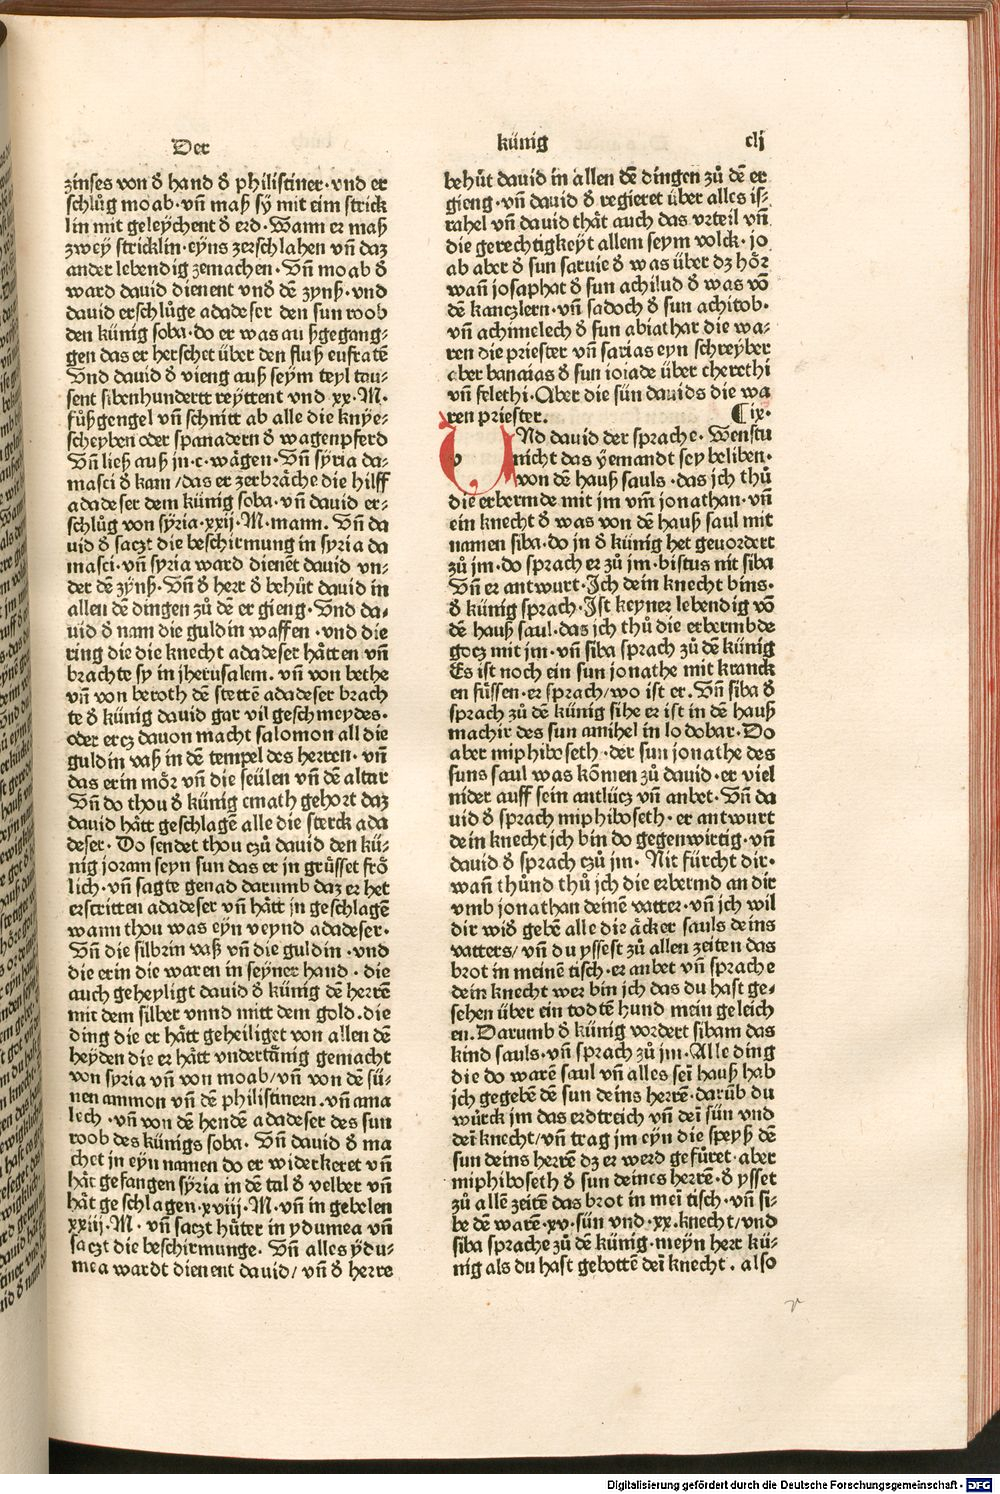 Der künig clj
zinses von ð hand ð philistiner· vnd er
schlůg moab· vñ maß sÿ mit eim strick
lin mit geleychent ð erd· Wann er maß
zwey stricklin· eyns zerschlahen vñ daz
ander lebendig zemachen· Vñ moab ð
ward dauid dienent vnð dē zynß· vnd
dauid erschlůge adadeser den sun roob
den künig soba· do er was außgegang⸗
gen das er herschet über den fluß eufratē
Vnd dauid ð vieng auß seÿm teyl tau⸗
sent sibenhundertt reyttent vnd ·xx·M·
fůßgengel vñ schnitt ab alle die knÿe⸗
scheyben oder spanadern ð wagenpferd
Vñ ließ auß jn·c·wägen· Vñ sÿria da⸗
masci ð kam/das er zerbräche die hilff
adadeser dem künig soba· vñ dauid er⸗
schlůg von sÿria·xxij·M·mann. Vñ da
uid ð saczt die beschirmung in syria da
masci· vñ syria ward dienēt dauid vn⸗
der dē zÿnß· Vñ ð herr ð behůt dauid in
allen dē dingen zů dē er gieng· Vnd da⸗
uid ð nam die guldin waffen ·vnd die
ring die die knecht adadeser hätten vñ
brachte sy in jherusalem. vñ von bethe
vñ von beroth dē stettē adadeser brach
te ð künig dauid gar vil geschmeydes·
oder ercz dauon macht salomon all die
guldin vaß in dē tempel des herren· vñ
das erin mör vñ die seülen vñ dē altar
Vñ do thou ð künig emath gehort daz
dauid hätt geschlagē alle die sterck ada
deser· Do sendet thou czů dauid den kü⸗
nig joram seyn sun das er in grüsset frö
lich· vñ sagte genad darumb daz er het
erstritten adadeser vñ hätt jn geschlagē
wann thou was eyn veynd adadeser·
Vñ die silbrin vaß vñ die guldin ·vnd
die erin die waren in seyner hand· die
auch geheyligt dauid ð künig dē herrē
mit dem silber vnnd mitt dem gold.die
ding die er hätt geheiliget von allen dē
heyden die er hätt vndertänig gemacht
von syria vñ von moab/vñ von dē sü⸗
nen ammon vñ dē philistinern· vñ ama
lech ·vñ von dē hendē adadeser des sun
roob des künigs soba· Vñ dauid ð ma
chet jn eyn namen do er widerkeret vñ
hät gefangen sÿria in dē tal ð velber vñ
hät geschlagen·xviij·M·vñ in gebelen
xxiij·M· vñ saczt hůter in ydumea vñ
saczt die beschirmunge· Vñ alles ÿdu⸗
mea wardt dienent dauid/ vñ ð herre
behůt dauid in allen dē dingen zů dē er
gieng· vñ dauid ð regieret über alles is⸗
rahel vñ dauid thät auch das vrteil vñ
die gerechtigkeyt allem seym volck· jo
ab aber ð sun saruie ð was über dz hör
wañ josaphat ð sun achilud ð was vō
dē kanczlern· vñ sadoch ð sun achitob·
vñ achimelech ð sun abiathar die wa⸗
ren die priester vñ sarias eyn schreyber
aber banaias ð sun joiade über cherethi
vñ felethi·Aber die sün dauids die wa
ren priester. ¶ix·
VNd dauid der sprache· Wenstu
nicht das ÿemandt sey beliben·
von dē hauß sauls ·das jch thů
die erbermde mit jm vm̄ jonathan·vñ
ein knecht ð was von dē hauß saul mit
namen siba·do jn ð künig het geuordert
zů jm·do sprach er zů jm·bistus nit siba
Vñ er antwurt·Ich dein knecht bins·
ð künig sprach·Ist keyner lebendig vō
dē hauß saul·das jch thů die erbermbde
gotz mit jm· vñ siba sprach zů dē künig
Es ist noch ein sun jonathe mit kranck
en füssen·er sprach/wo ist er·Vñ siba ð
sprach zů dē künig sihe er ist in dē hauß
machir des sun amihel in lo dobar·Do
aber miphiboseth ·der sun jonathe des
suns saul was kōmen zů dauid·er viel
nider auff sein antlücz vñ anbet·Vñ da
uid ð sprach miphiboseth· er antwurt
dein knecht jch bin do gegenwirtig·vñ
dauid ð sprach czů jm· Nit fürcht dir·
wañ thůnd thů jch die erbermd an dir
vmb jonathan deinē vatter·vñ jch wil
dir wið gebē alle die äcker sauls deins
vatters/vñ du yssest zů allen zeiten das
brot in meinē tisch·er anbet vñ sprache
dein knecht wer bin jch das du hast ge⸗
sehen über ein todtē hund mein geleich
en.Darumb ð künig vordert sibam das
kind sauls·vñ sprach zů jm·Alle ding
die do warē saul vñ alles sei hauß hab
jch gegebē dē sun deins herrē·darūb du
würck jm das erdtreich vñ dei sün vnd
dei knecht/vñ trag jm eyn die speyß dē
sun deins herrē dz er werd gefüret·aber
miphiboseth ð sun deines herrē·ð ysset
zů allē zeitē das brot in mei tisch·vñ si⸗
be dē warē·xv·sün vnd·xx·knecht/vnd
siba sprache zů dē künig·meÿn herr kü⸗
nig als du hast gebottē dei knecht. also
Digitalisierung gefördert durch die Deutsche Forschungsgemeinschaft · DFG